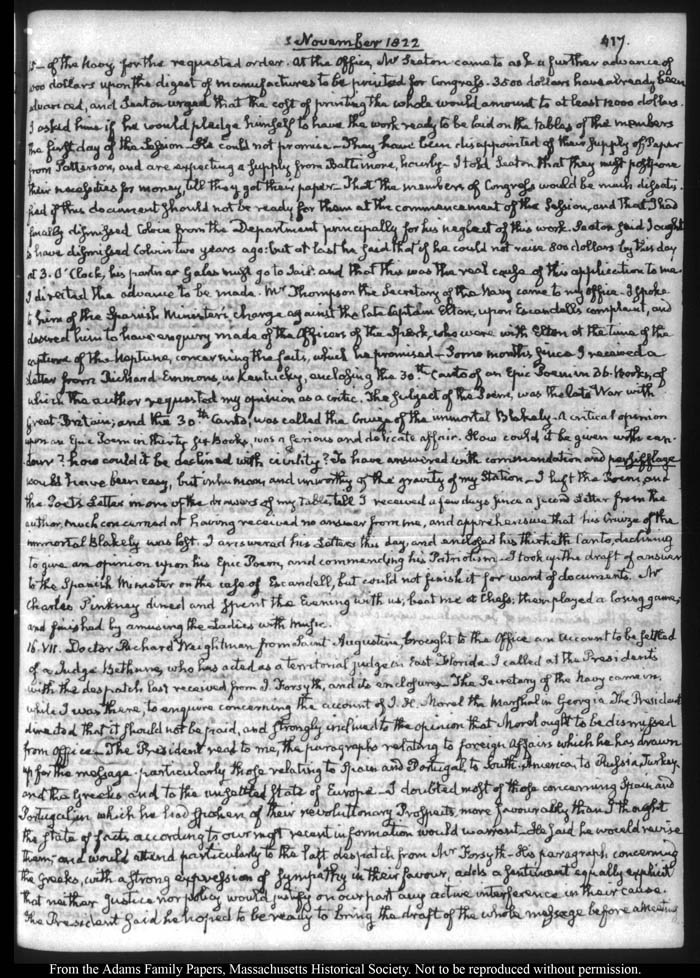 November 1822 417.
of the Navy, for the requested order. At the Office, Mr Seaton came to ask a further advance of
dollars upon the digest of manufactures to be printed for Congress. 3500 dollars have already been
advanced, and Seaton urged that the cost of printing the whole would amount to at least 12000 dollars.
I asked him if he would pledge himself to have the work ready to be laid on the tables of the members
the first day of the Session. He could not promise. They have been disappointed of their supply of Paper
from Patterson, and are expecting a supply from Baltimore, hourly. I told Seaton that they must postpone
their necessities for money, till they got their paper. That the members of Congress would be much dissatis-
fied if this document should not be ready for them at the commencement of the Session, and that I had
finally dismissed Colvin from the Department principally for his neglect of this work. Seaton said I ought
to have dismissed Colvin two years ago: but at last he said that if he could not raise 800 dollars by this day
at 3. O'Clock, his partner Gales must go to Jail: and that this was the real cause of this application to me.
I directed the advance to be made. Mr Thompson the Secretary of the Navy came to my office. I spoke
to him of the Spanish Minister's charge against the late Captain Elton, upon Escandell's complaint, and
desired him to have enquiry made of the Officers of the Spark, who were with Elton at the time of the
capture of the Neptune, concerning the facts, which he promised. Some months since I received a
Letter from Richard Emmons, in Kentucky, enclosing the 30th Canto of an Epic Poem in 36. Books, of
which the author requested my opinion as a critic. The subject of the Poem, was the late War with
Great Britain; and the 30.th Canto, was called the Cruize of the immortal Blakely. A critical opinion
upon an Epic Poem in thirty six Books, was a serious and delicate affair. How could it be given with can-
dour? how could it be declined with civility? To have answered with commendation and persifflage
would have been easy, but inhuman, and unworthy of the gravity of my Station. I left the Poem and
the Poet's Letter in one of the drawers of my table, till I received a few days since a second Letter from the
author, much concerned at having received no answer from me, and apprehensive that his Cruize of the
immortal Blakely was lost. I answered his Letters this day, and enclosed his thirtieth Canto, declining
to give an opinion upon his Epic Poem, and commending his Patriotism. I took up the draft of answer
to the Spanish Minister on the case of Escandell, but could not finish it for want of documents. Mr
Charles Pinkney dined and spent the Evening with us; beat me at Chess; then played a losing game;
and finished by amusing the Ladies with music.
16. VII. Doctor Richard Weightman from Saint Augustine, brought to the Office an account to be settled
of a Judge Bethune, who has acted as a territorial judge in East Florida. I called at the President's
with the despatch last received from J. Forsyth, and its enclosures. The Secretary of the Navy came in
while I was there, to enquire concerning the account of J. H. Morel the Marshal in Georgia. The President
directed that it should not be paid, and strongly inclined to the opinion that Morel ought to be dismissed
from office. The President read to me, the paragraphs relating to foreign Affairs which he has drawn
up for the message. particularly those relating to Spain and Portugal, to South-America, to Russia, Turkey
and the Greeks and to the unsettled State of Europe. I doubted most of those concerning Spain and
Portugal, in which he had spoken of their revolutionary Prospects, more favourably than I thought
the state of facts according to our most recent information would warrant. He said he would revise
them, and would attend particularly to the last despatch from Mr Forsyth. His paragraph concerning
the Greeks, with a strong expression of sympathy in their favour, adds a sentiment equally explicit
that neither justice nor policy would justify on our part any active interference in their cause.
The President said he hoped to be ready to bring the draft of the whole message before a meeting
From the Adams Family Papers, Massachusetts Historical Society. Not to be reproduced without permission.